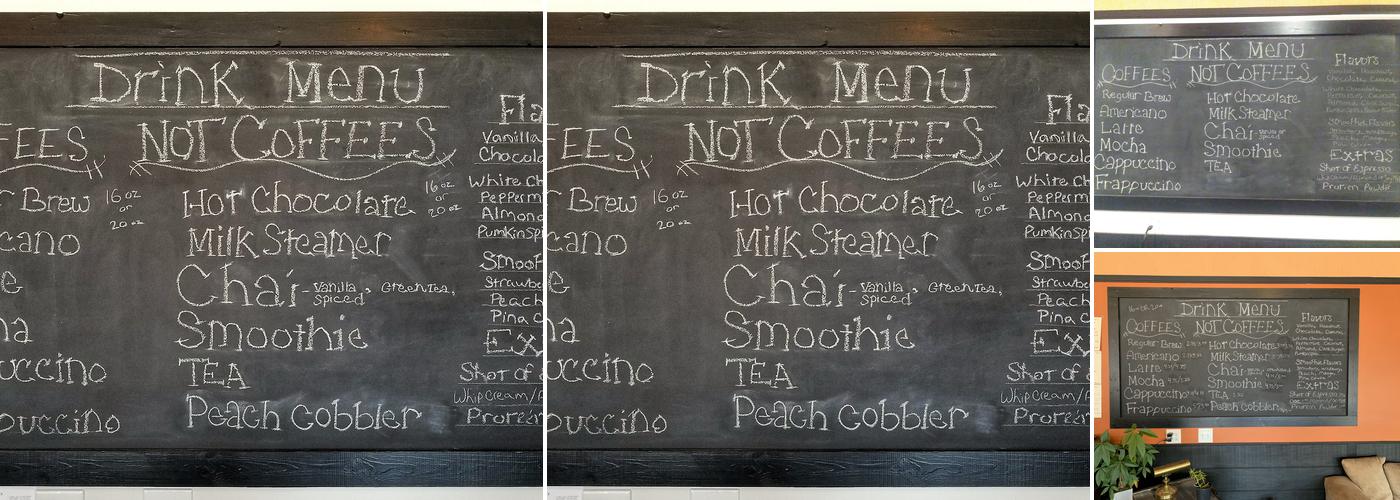 Drink Menu
NOT COFFEES
EES
Brew 16 oz or 20 oz
cano
uccino
puccino
Hot Chocolate 16 oz or 20 oz
Milk Steamer
Chai - Vanilla, Green Tea,
Spiced
Smoothie
TEA
Peach cobbler
Fla
Vanilla
Chocola
White Ch
Pepperm
Almond
PumkinSpi
Smoot
Strawbe
Peach
Pina C
Ex
Shot of
Whip Cream/
Drink Menu
NOT COFFEES
EES
Brew 16 oz or 20 oz
cano
uccino
puccino
Hot Chocolate 16 oz or 20 oz
Milk Steamer
Chai - Vanilla, Green Tea,
Spiced
Smoothie
TEA
Peach cobbler
Fla
Vanilla
Chocola
White Ch
Pepperm
Almond
PumkinSpi
Smoot
Strawbe
Peach
Pina C
Ex
Shot of
Whip Cream/
Drink Menu
COFFEES
Regular Brew
Americano
Latte
Mocha
Cappuccino
Frappuccino
NOT COFFEES
Hot Chocolate
Milk Steamer
Chai
Smoothie
TEA
Flavors
Smoothie Flavors
Extras
Shot of Espresso
Protein Powder
Drink Menu
COFFEES
Regular Brew
Americano
Latte
Mocha
Cappuccino
Frappuccino
NOT COFFEES
Hot Chocolate
Milk Steamer
Chai
Smoothie
TEA
Peach Cobbler
Flavors
Smoothie Flavors
Extras
Shot of Espresso
Protein Powder